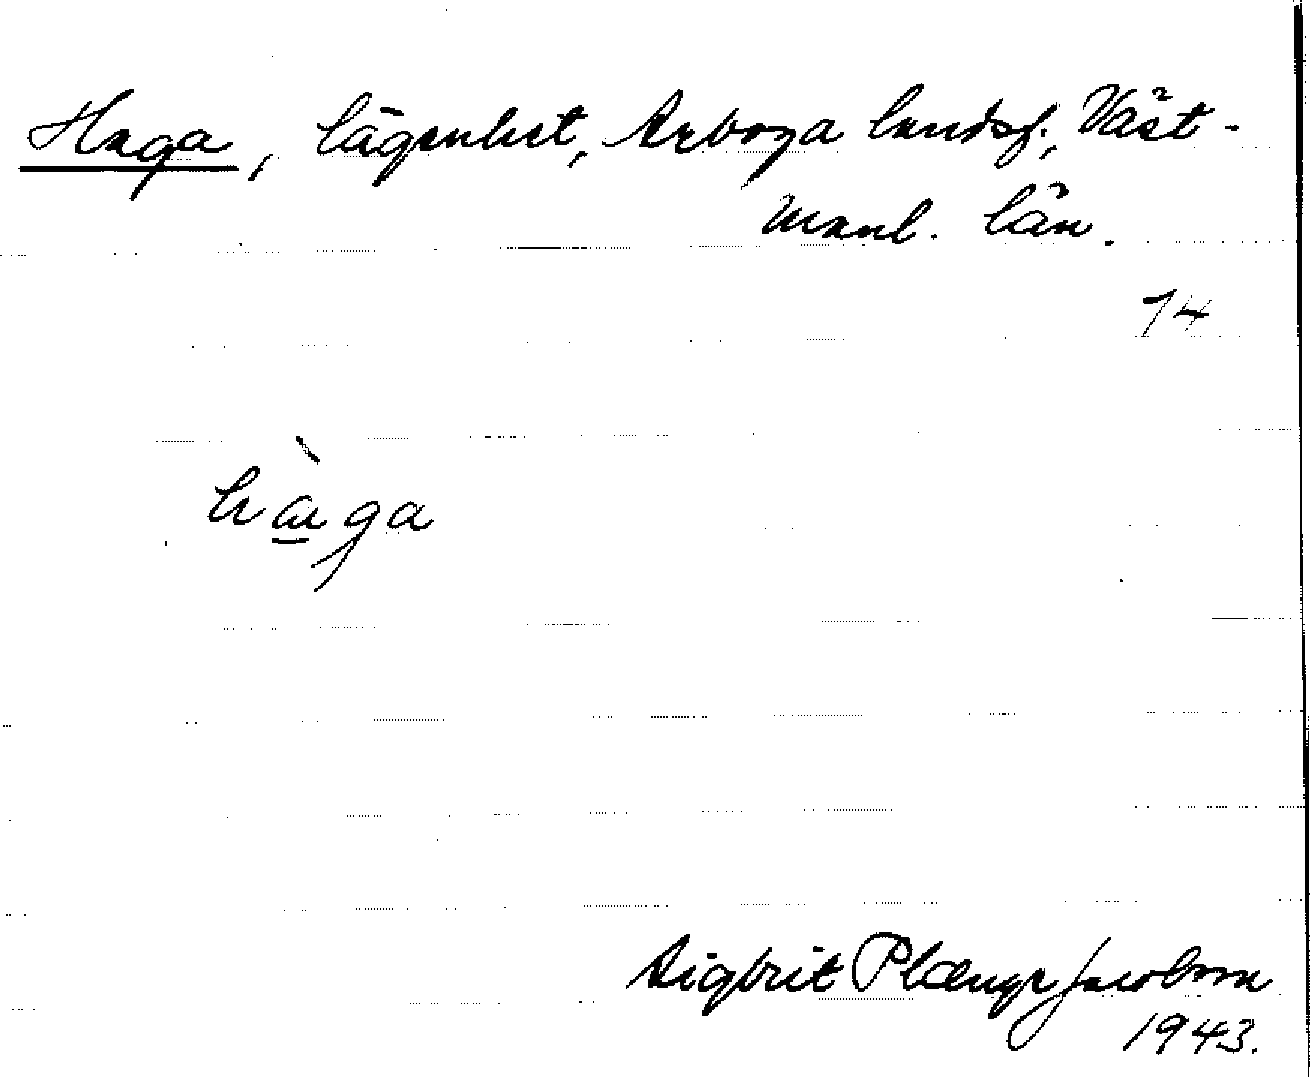 Haga, lägenhet, Arboga landsf., Väst-
manl. län.
14
hàga
Sigbrit Plænge Jacobson
1943.